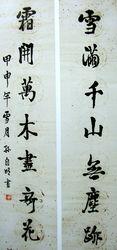 雪滿千山無塵跡
霜開萬木盡奇花
甲申年雪月孫自明書